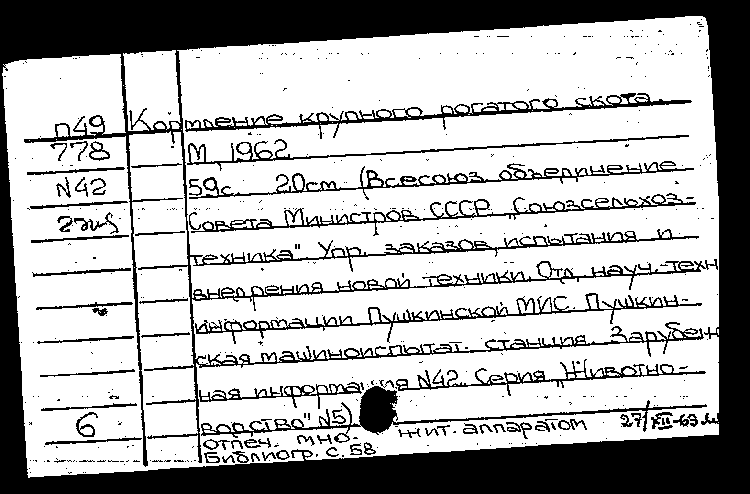 п49 Кормление крупного рогатого скота.
778 М, 1962
N42 59с. 20см (Всесоюз. объединение
2 экз Совета Министров СССР „Союзсельхоз-
техника" Упр. заказов, испытания и
внедрения новой техники. Отд. науч.-техн
информации Пушкинской МИС. Пушкин-
ская машиноиспытат. станция. Зарубеж
ная информация N42. Серия „Животно-
6 водство" N5)
отпеч. мно- жит. аппаратом 27/XII-63
Библиогр. с. 58